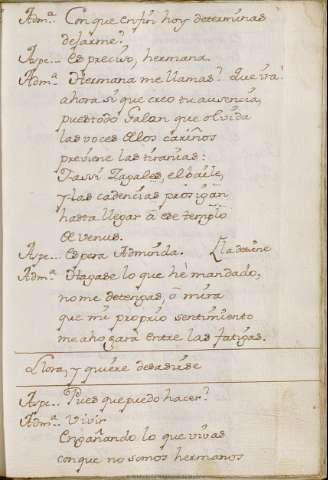 Adm.ª Conque en fin hoy determinas
dejarme?
Aspe... es preciso, hermana.
Adm.ª Hermana me llamas? Que irà!
ahora si que creo tu ausencia,
pues todo Galan que olvida
las voces de los cariños
previene las tiranias:
Zagales, el baile,
y las cadencias prosigan
hasta llegar à ese templo
de Venus.
Aspe... espera Admunda. La detiene
Adm.ª Hagase lo que hè mandado,
no me detengas, ò mira
que mi proprio sentimiento
me ahogarà entre las fatigas.
Llora, y quiere desasirse
Aspe... Pues que puedo hacer?
Adm.ª Vivir
Engañando lo que vivas
con que no somos hermanos